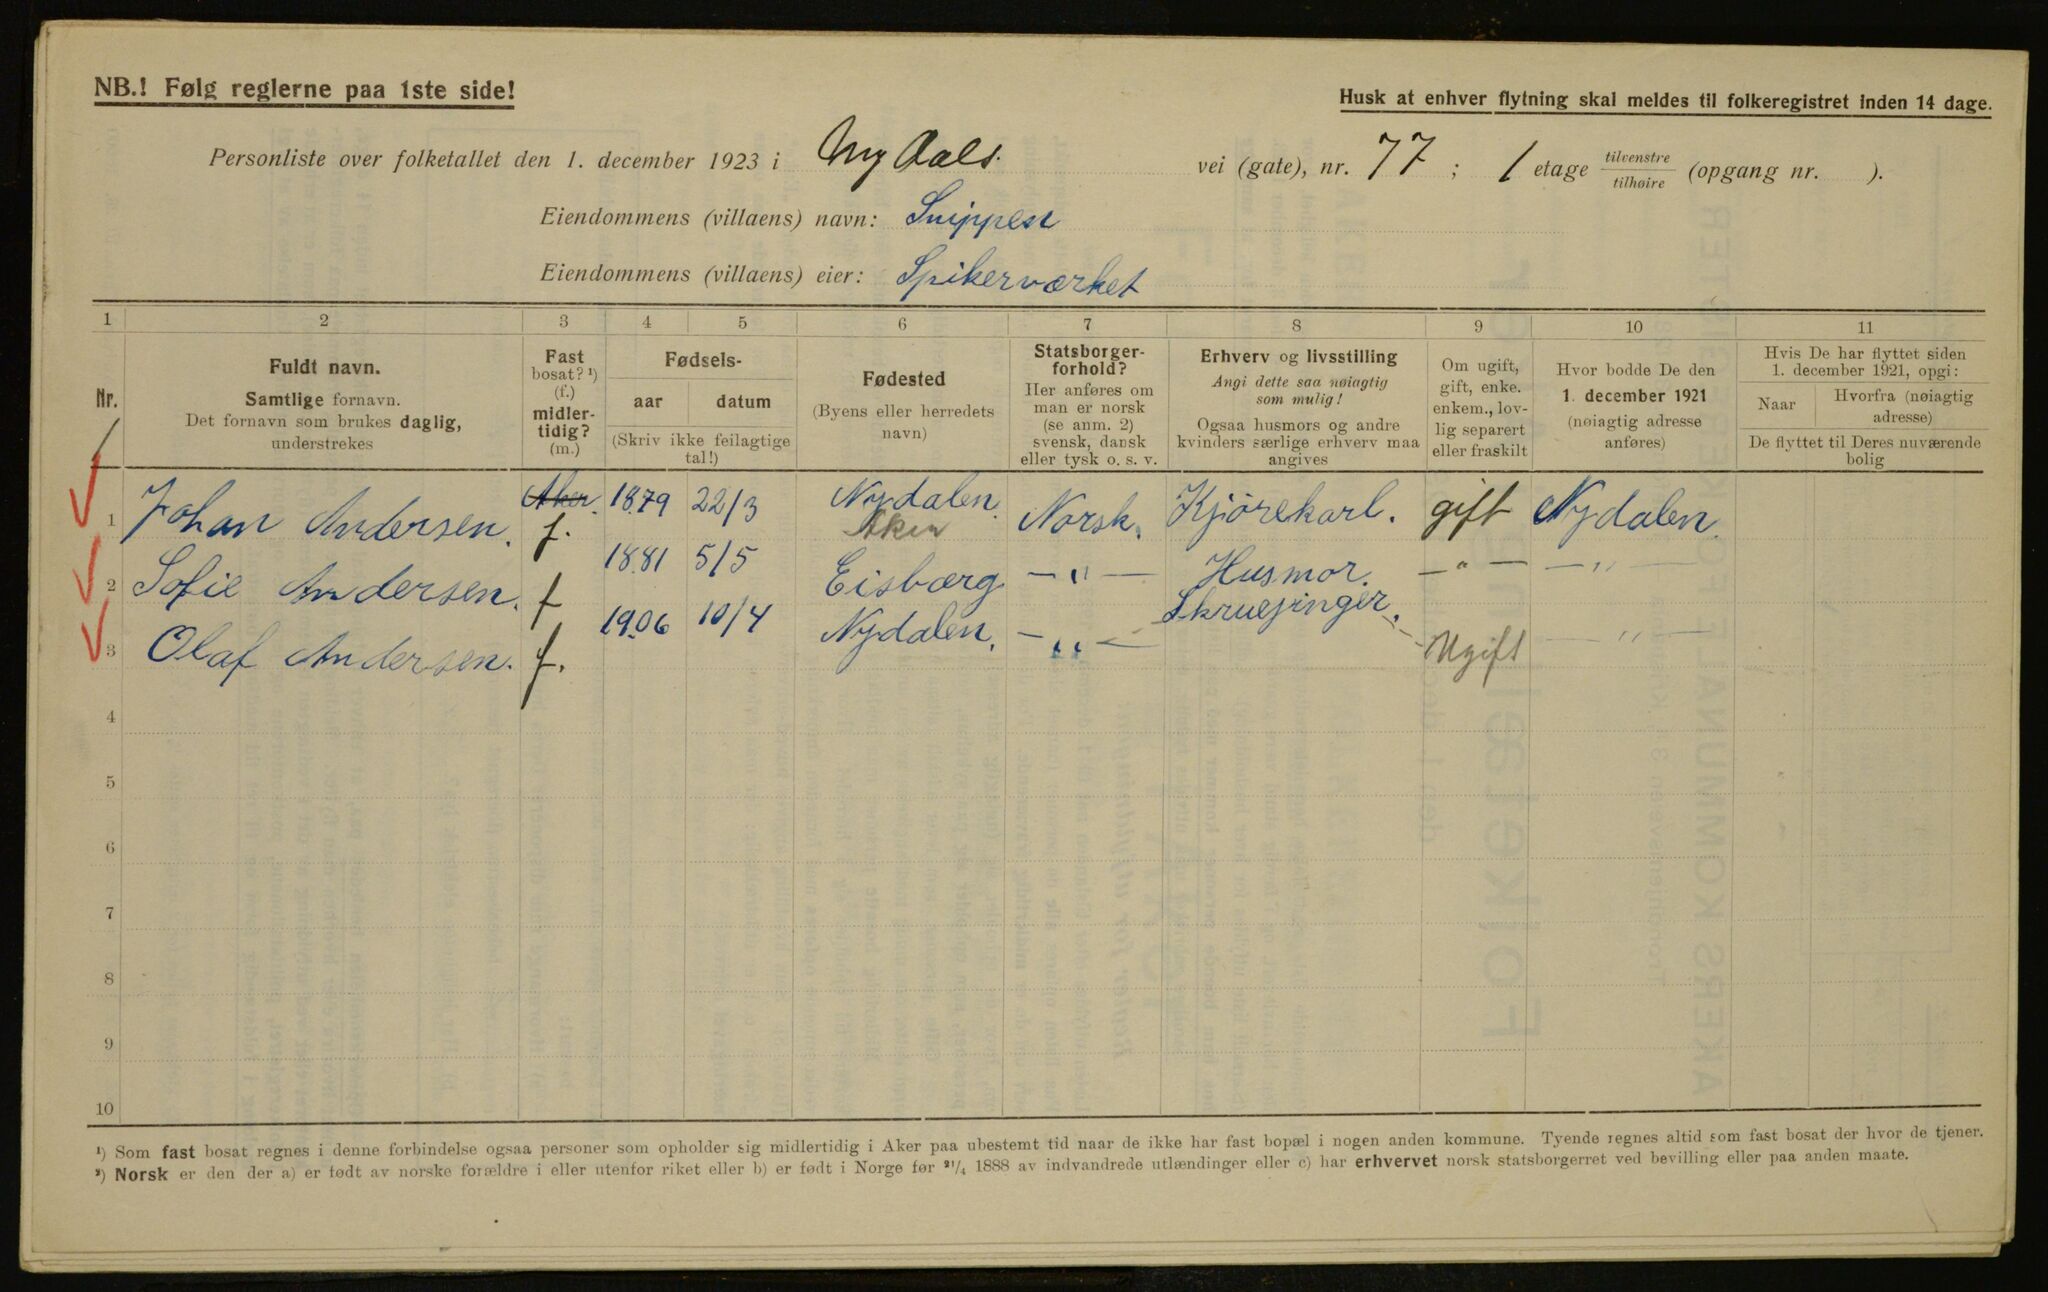 NB.! Følg reglerne paa 1ste side!
Husk at enhver flytning skal meldes til folkeregistret inden 14 dage.
Personliste over folketallet den 1. december 1923 i Nydals. vei (gate), nr. 77 ; 1 etage tilvenstre/tilhøire (opgang nr. ).
Eiendommens (villaens) navn: Snippen
Eiendommens (villaens) eier: Spikerværket
1 2 3 4 5 6 7 8 9 10 11
Nr.
Fuldt navn.
Samtlige fornavn.
Det fornavn som brukes daglig,
understrekes
Fast
bosat? ¹)
(f.)
midler-
tidig?
(m.)
Fødsels-
aar datum
(Skriv ikke feilagtige
tal!)
Fødested
(Byens eller herredets
navn)
Statsborger-
forhold?
Her anføres om
man er norsk
(se anm. 2)
svensk, dansk
eller tysk o. s. v.
Erhverv og livsstilling
Angi dette saa nøiagtig
som mulig!
Ogsaa husmors og andre
kvinders særlige erhverv maa
angives
Om ugift,
gift, enke.
enkem., lov-
lig separert
eller fraskilt
Hvor bodde De den
1. december 1921
(nøiagtig adresse
anføres)
Hvis De har flyttet siden
1. december 1921, opgi:
Naar Hvorfra (nøiagtig
adresse)
De flyttet til Deres nuværende
bolig
1 Johan Andersen. Aker. f. 1879 22/3 Nydalen. Aker Norsk. Kjørekarl. gift Nydalen.
2 Sofie Andersen. f 1881 5/5 Eisbærg — " — Husmor. — " — — " —
3 Olaf Andersen. f. 1906 10/4 Nydalen. — " — Ugift — " —
4
5
6
7
8
9
10
¹) Som fast bosat regnes i denne forbindelse ogsaa personer som opholder sig midlertidig i Aker paa ubestemt tid naar de ikke har fast bopæl i nogen anden kommune. Tyende regnes altid som fast bosat der hvor de tjener.
²) Norsk er den der a) er født av norske forældre i eller utenfor riket eller b) er født i Norge før ²¹/₄ 1888 av indvandrede utlændinger eller c) har erhvervet norsk statsborgerret ved bevilling eller paa anden maate.